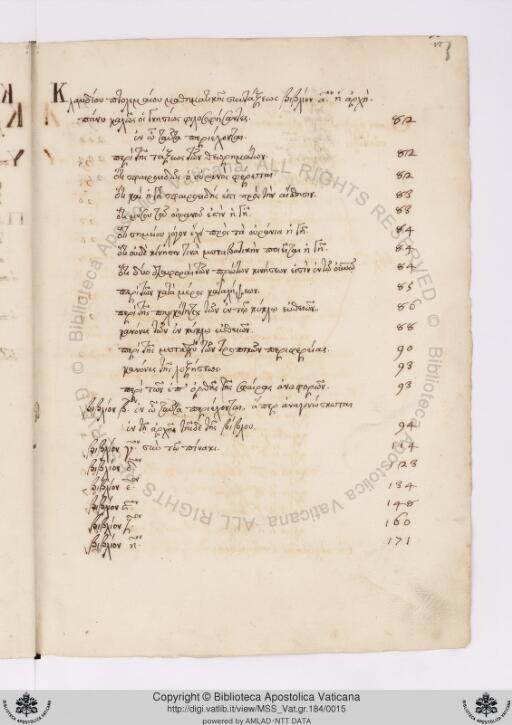 Κλαυδίου πτολεμαίου μαθηματικῆς συντάξεως βιβλίον αον ἡ ἀρχὴ
πάνυ καλῶς οἱ γνησίως φιλοσοφήσαντες. 82
ἐν ᾧ ταῦτα περιέχονται.
περὶ τῆς τάξεως τῶν θεωρημάτων 82
ὅτι σφαιροειδῶς ὁ οὐρανὸς φέρεται 82
ὅτι καὶ ἡ γῆ σφαιροειδής ἐστι πρὸς τὴν αἴσθησιν. 83
ὅτι μέση τοῦ οὐρανοῦ ἐστὶν ἡ γῆ. 83
ὅτι σημείου λόγον ἔχει πρὸς τὰ οὐράνια ἡ γῆ. 84
ὅτι οὐδὲ κίνησίν τινα μεταβατικὴν ποιεῖται ἡ γῆ. 84
ὅτι δύο διαφοραὶ τῶν πρώτων κινήσεών εἰσιν ἐν τῷ οὐρανῷ 84
περὶ τῶν κατὰ μέρος καταλήψεων. 85
περὶ τῆς πηλικότητος τῶν ἐν τῷ κύκλῳ εὐθειῶν. 86
κανόνες τῶν ἐν κύκλῳ εὐθειῶν. 88
περὶ τῆς μεταξὺ τῶν τροπικῶν περιφερείας. 90
κανόνες τῆς λοξώσεως 93
περὶ τῶν ἐπ' ὀρθῆς τῆς σφαίρας ἀναφορῶν. 93
βιβλίον βον ἐν ᾧ ταῦτα περιέχονται, ἅπερ
ἐν τῇ ἀρχῇ τοῦδε τῆς βίβλου. 94
βιβλίον γον σὺν τῷ πίνακι. 114
βιβλίον δον 123
βιβλίον εον 134
βιβλίον ϛον 148
βιβλίον ζον 160
βιβλίον ηον 171
Copyright © Biblioteca Apostolica Vaticana
http://digi.vatlib.it/view/MSS_Vat.gr.184/0015
powered by AMLAD-NTT DATA
© Biblioteca Apostolica Vaticana ALL RIGHTS RESERVED